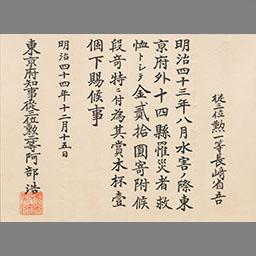 従三位勲一等長崎省吾
明治四十三年八月水害ノ際東
京府外十四縣罹災者救
恤トシテ金貳拾圓寄附候
段奇特ニ付為其賞木杯壹
個下賜候事
明治四十四年十二月十五日
東京府知事従三位勲二等阿部浩